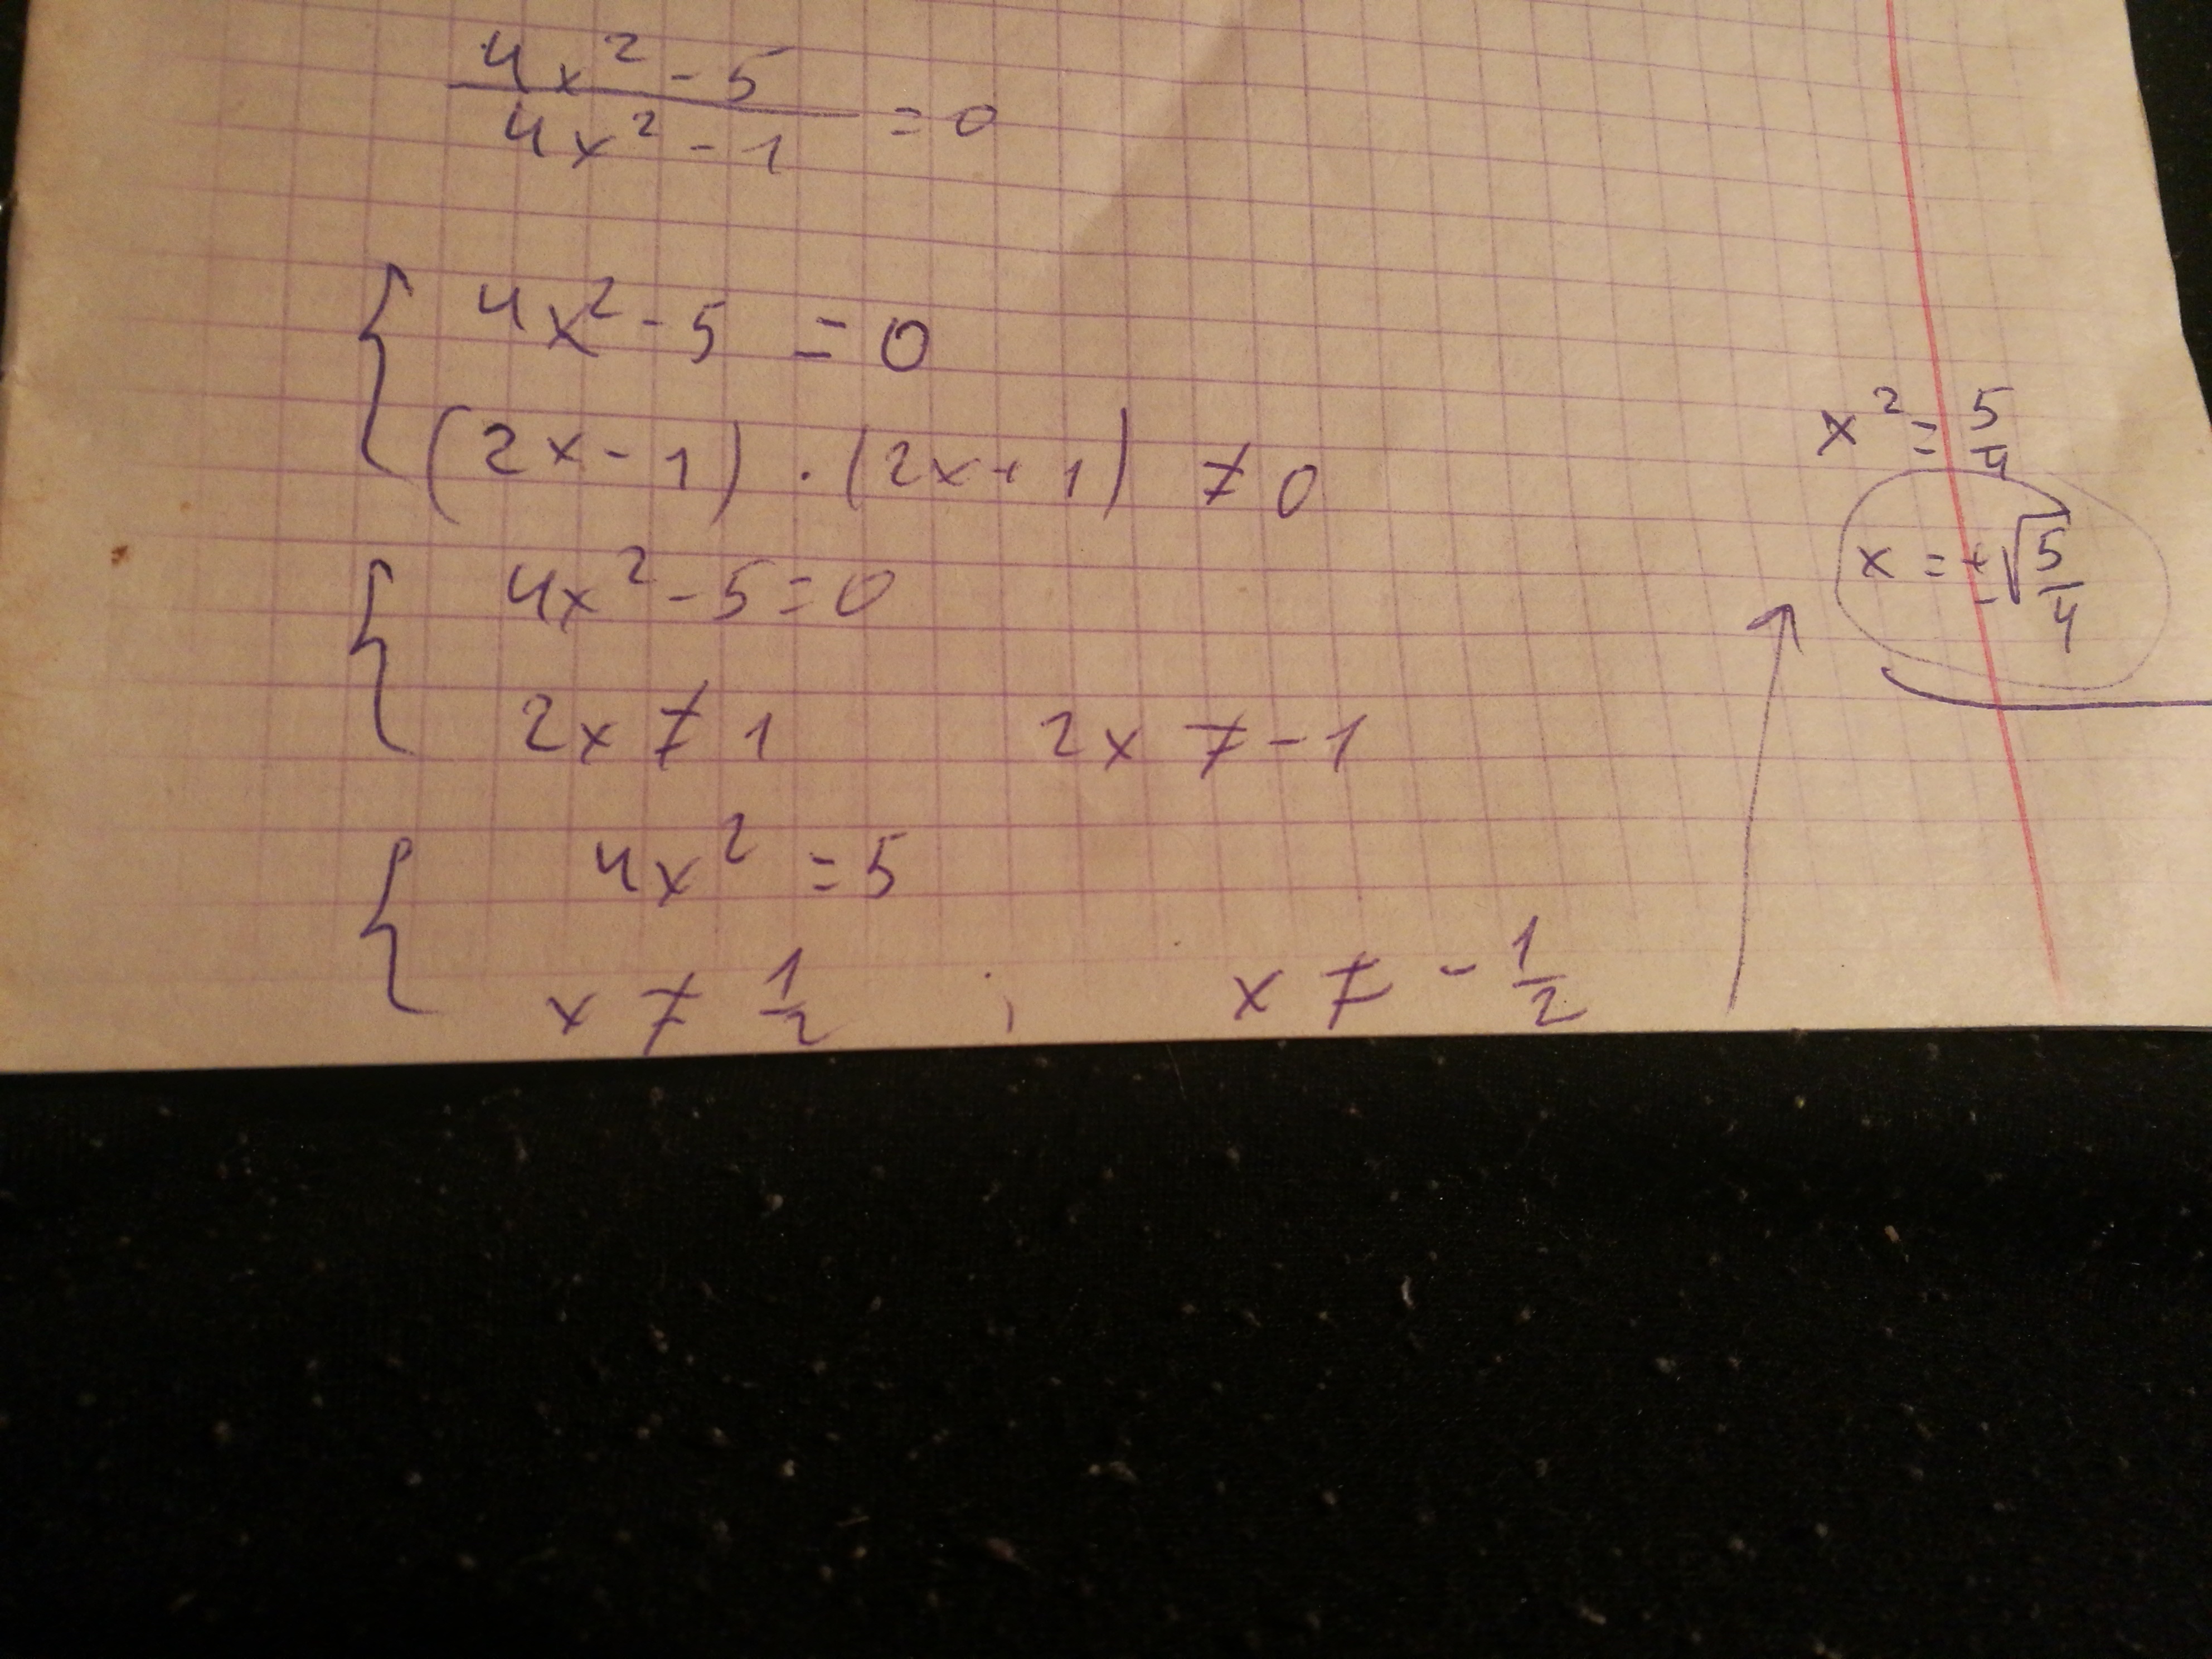 4x² - 5
4x² - 1 = 0
4x² - 5 = 0
(2x - 1) · (2x + 1) ≠ 0
4x² - 5 = 0
2x ≠ 1 2x ≠ -1
4x² = 5
x ≠ 1/2 ; x ≠ - 1/2
x² = 5/4
x = ± √5/4